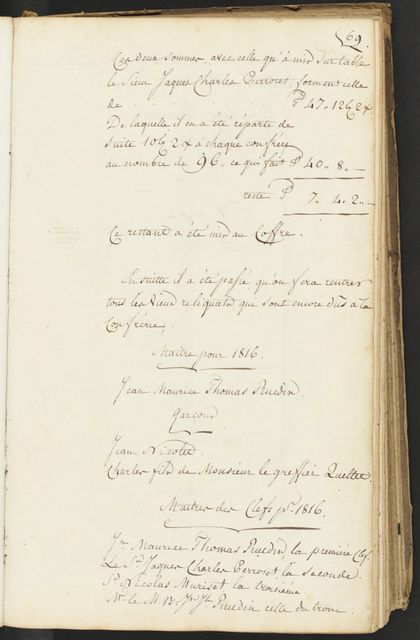 69.
Ces deux sommes, avec celle qu'à mis sur table
le Sieur Jaques Charles Perroset, forment celle
de ₶ 47 .. 12 6 2 x
De laquelle il en a été réparti de
suite 10 6 2 x à chaque confrère
au nombre de 96 .. ce qui fait ₶ 40 .. 8 .. —
reste ₶ 7 .. 4 .. 2 .. —
Ce restant a été mis au Coffre.
Ensuitte il a été passé qu'on fera rentrer
tous les Vieux reliquats que sont encore dûs a la
Confrérie,
Maitre pour 1816.
Jean Maurice Thomas Ruedin
Garçons
Jean Nicolet
Charles fils de Monsieur le greffier Quellet
Maitres des Clefs pr. 1816.
Jn. Maurice Thomas Ruedin, la première Clef.
Le Sr. Jaques Charles Perroset, la seconde
Sr. Nicolas Muriset la troisième
Mr. le M. B: Jn. Jn. Ruedin celle du tronc